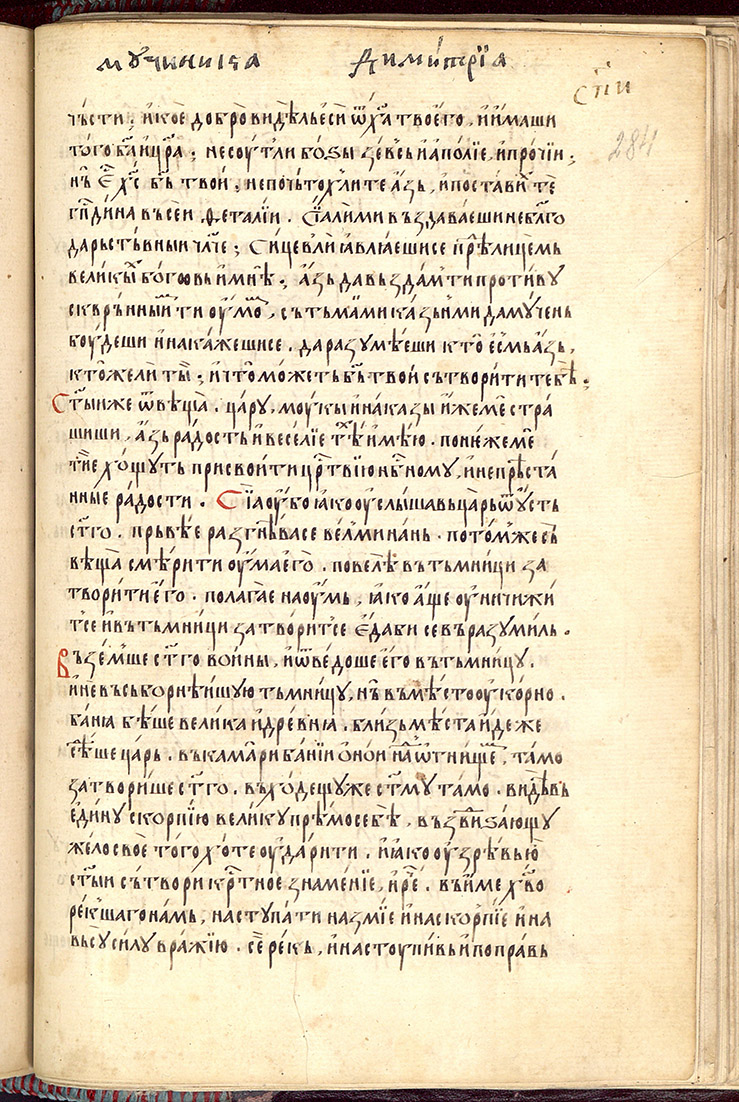 мꙋченика Димитрїа
сп҃и
284
чьсти; и҆ кое добро видѣль еси ѿ хⷭ҇а твоего, и҆ и҆маши
того ба҃ и҆ цр҃а; не соуть ли бо́ѕы зевьсь и҆ аполїе, и҆ прочїи;
нь҃ е҆ хⷭ҇ бь҃ твои; не почьтох ли те азь, и҆ поставих те
гпⷭ҇дина въ сеи ѳеталїи. сїа ли ми въздаваеши небл҃го
дарьствьныи чл҃че; Сице ли ꙗвлꙗеши се прѣⷣ лицемь
великыⷯ бо́гоовь и҆ мнѣ; азь да въздамь ти противꙋ
скврьнныⷨ ти оумоⷨ, съ тьмами казньми да мꙋчень
боудеши и҆ накажеши се. да разꙋмѣеши кто е҆смь азь,
кто же ли ты; и҆ что можеть бь҃ твои сътворити тебѣ;
Ст҃ыи же ѿвѣща. цару, моукы и҆ наказы и҆же ме стра
шиши, азь радость и҆ веселїе тѣⷯ и҆мѣю. понеже ме
тїе хощуть присвоити црⷭ҇твїю нбⷭ҇ному, и҆ непрѣста
нные радости. Сїа оубо ꙗко оуслышавь царь ѿ оусть
ст҃го. прьвѣе разгнѣва се велми на нь. потомⷤ же съ
вѣща смѣрити оума е҆го. повелѣ въ тьмници за
творити е҆го. полагае на оумь, ꙗко аще оуничижи
тсе и҆ въ тьмници затворитсе е҆да би се въразумиль.
Въземше ст҃го войны, и҆ ѿведоше е҆го въ тьмницу.
и҆ не въ съборнѣишую тьмницу, нь҃ въ мѣсто оукорно.
банꙗ бѣше велика и҆ древнꙗ. близь мѣста и҆деже
бѣше царь. въ камари банїи онои на ѿгнищеⷯ, тамо
затворише ст҃го. въходещу же ст҃му тамо. видѣвь
е҆дину скорпїю велику прѣмо себѣ, въздвиѕающу
жело свое того хоте оударити. и҆ ꙗко оузрѣвь ю
ст҃ыи сътвори крⷭ҇тное знаменїе, и҆ реⷱ. въ име хв҃о
рекшаго намь, наступати на змїе и҆ на скорпїе и҆ на
вьсу силу вражїю. се рекь, и҆ настоупивь и҆ поправь